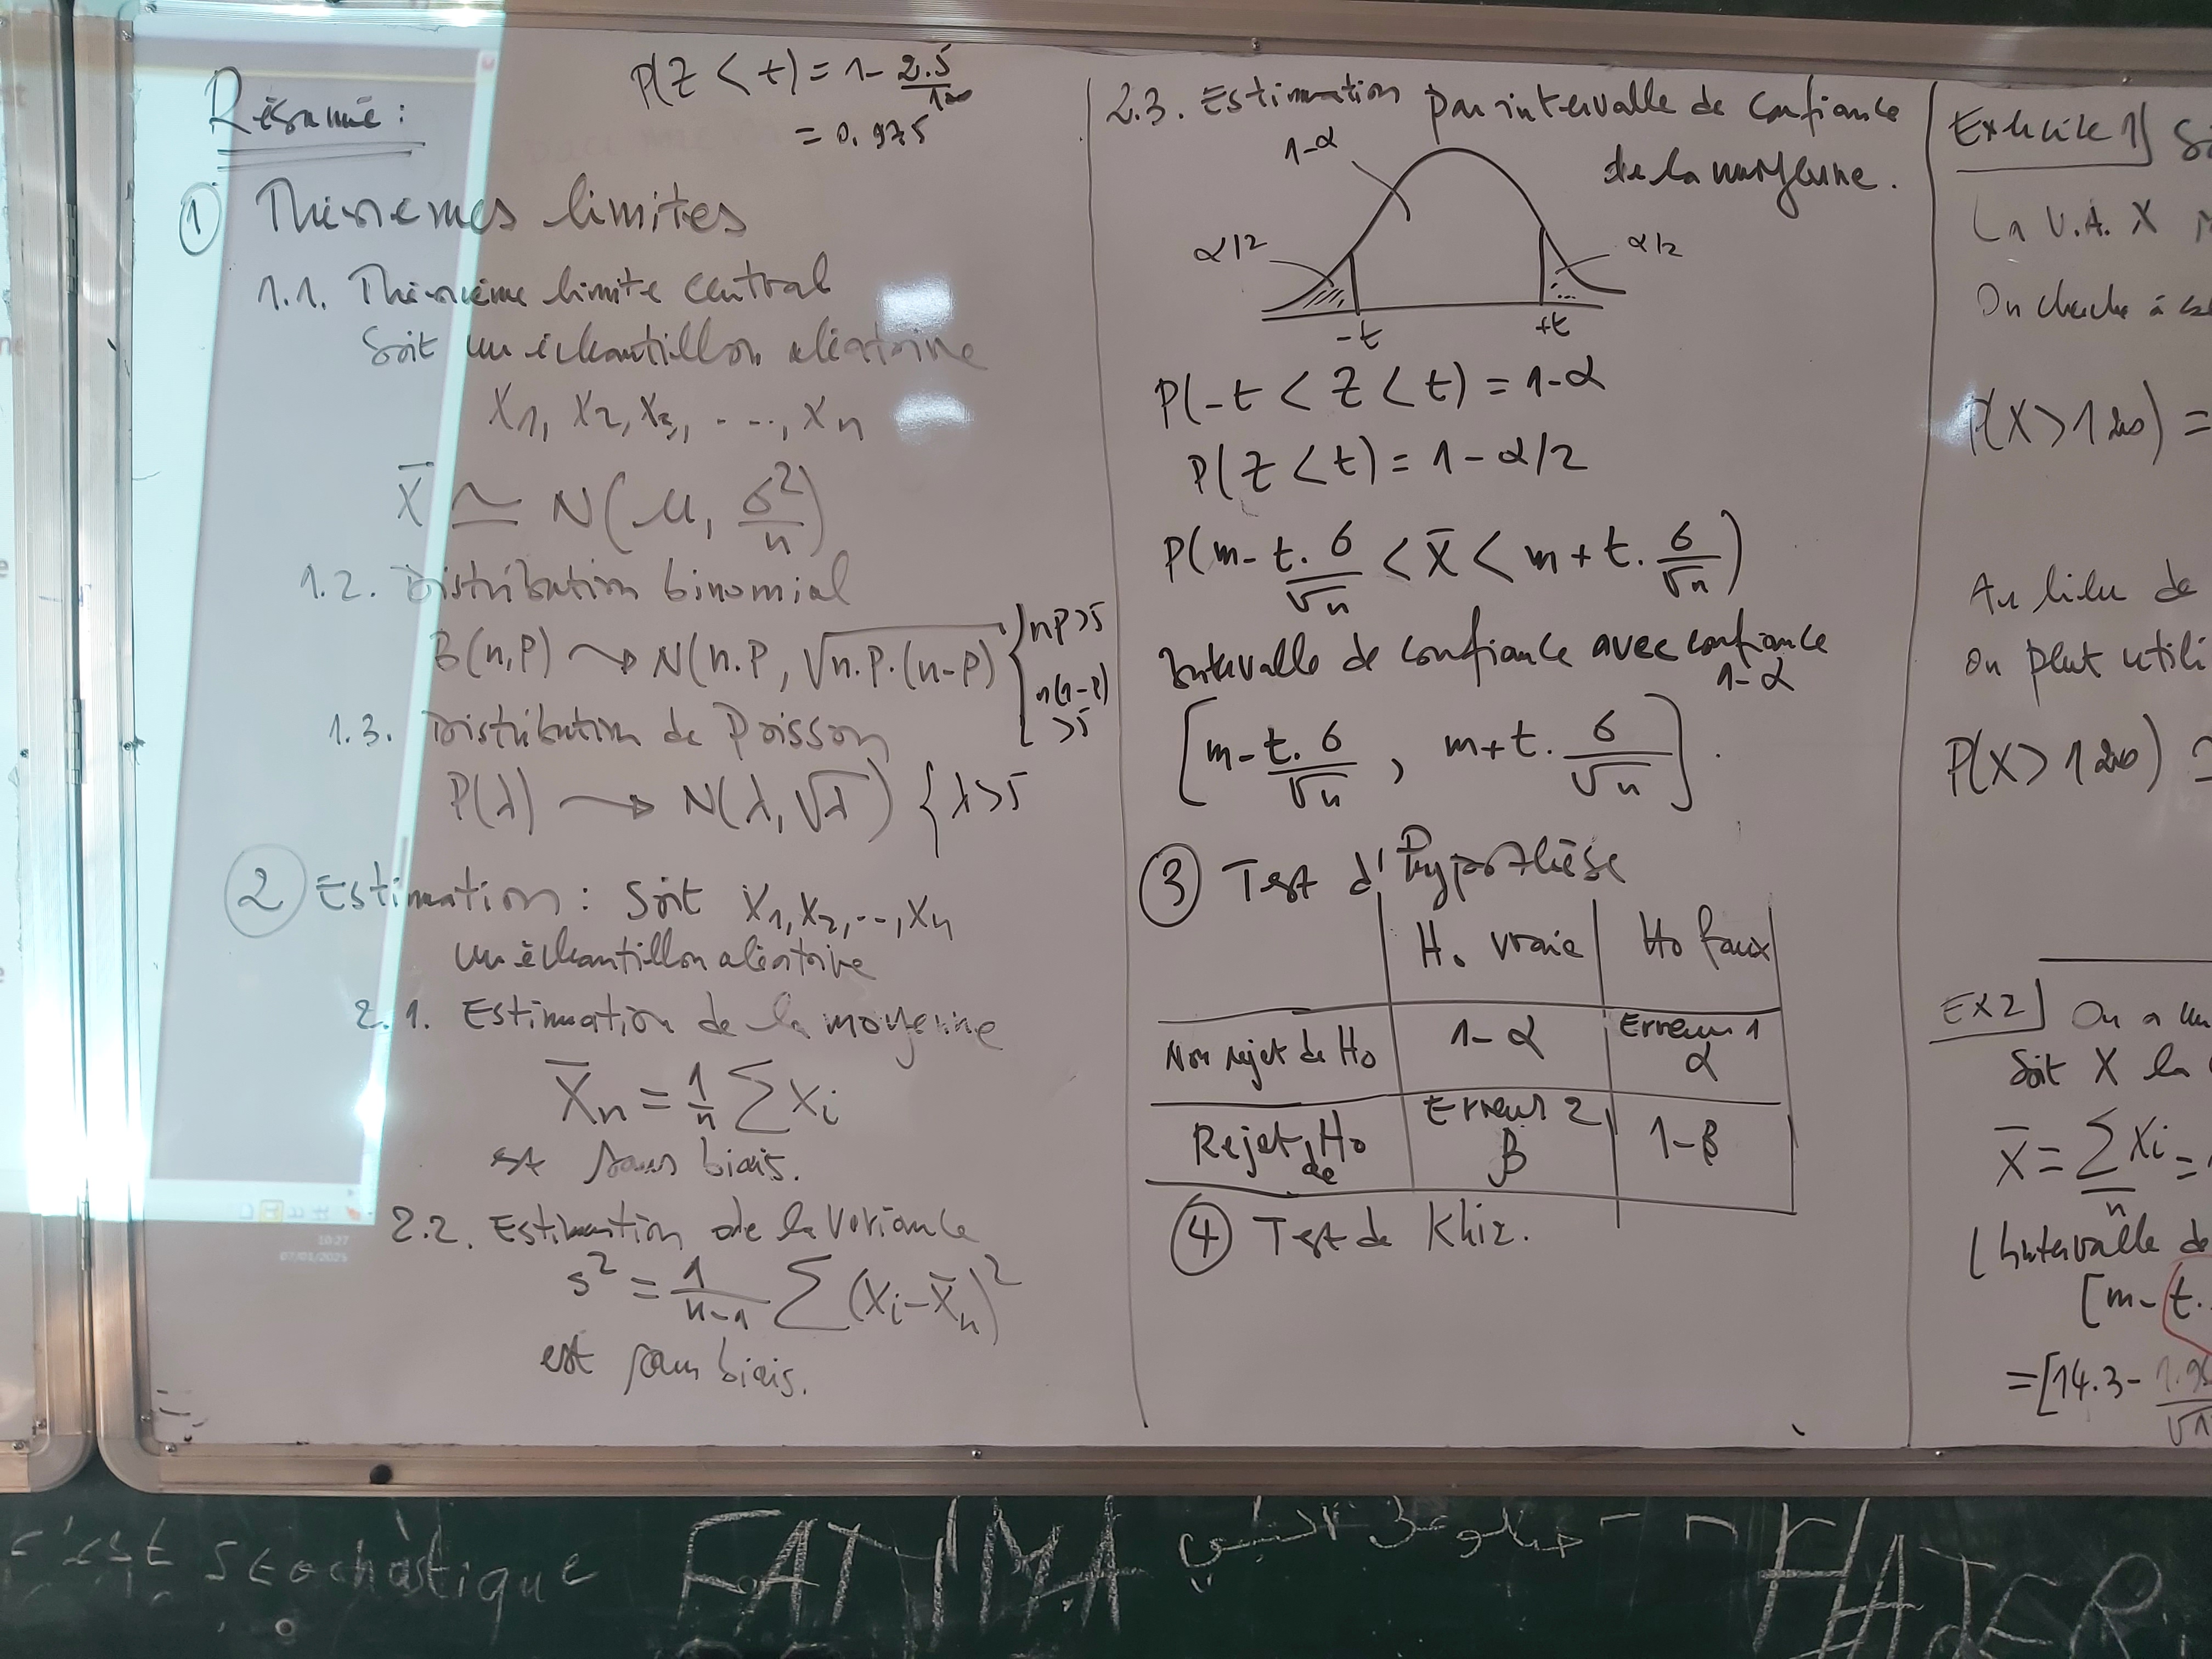 Résumé :
P(Z < t) = 1 - 2.5/100
= 0.975
① Théorèmes limites
1.1. Théorème limite central
Soit un échantillon aléatoire
X1, X2, X3, ..., Xn
X̄ ≃ N(μ, σ²/n)
1.2. Distribution binomial
B(n,P) → N(n.P, √n.P.(n-P) { nP>5
n(1-P)
>5
1.3. Distribution de Poisson
P(λ) → N(λ, √λ) { λ>5
② Estimation : Soit X1, X2, ..., Xn
un échantillon aléatoire
2.1. Estimation de la moyenne
X̄n = 1/n ∑ Xi
est sans biais.
2.2. Estimation de la variance
s² = 1/(n-1) ∑ (Xi - X̄n)²
est sans biais.
10:27
2.3. Estimation par intervalle de confiance
de la moyenne.
1-α
α/2
α/2
-t
+t
P(-t < Z < t) = 1-α
P(Z < t) = 1 - α/2
P(m - t. σ/√n < X̄ < m + t. σ/√n)
Intervalle de confiance avec confiance
1-α
[m - t. σ/√n , m + t. σ/√n].
③ Test d'hypothèse
H0 vraie H0 faux
Non rejet de H0 1-α Erreur 1 α
Rejet de H0 Erreur 2 β 1-β
④ Test de Khi2.
Exercice 1]
La V.A. X
On cherche à
P(X > 1200) =
Au lieu de
on peut utili
P(X > 1200) ≃
EX2] On a un
Soit X la
X̄ = ∑Xi/n =
L'intervalle de
[m - t.
= [14.3 - 1.96
c'est stochastique
FATIMA
HAJER